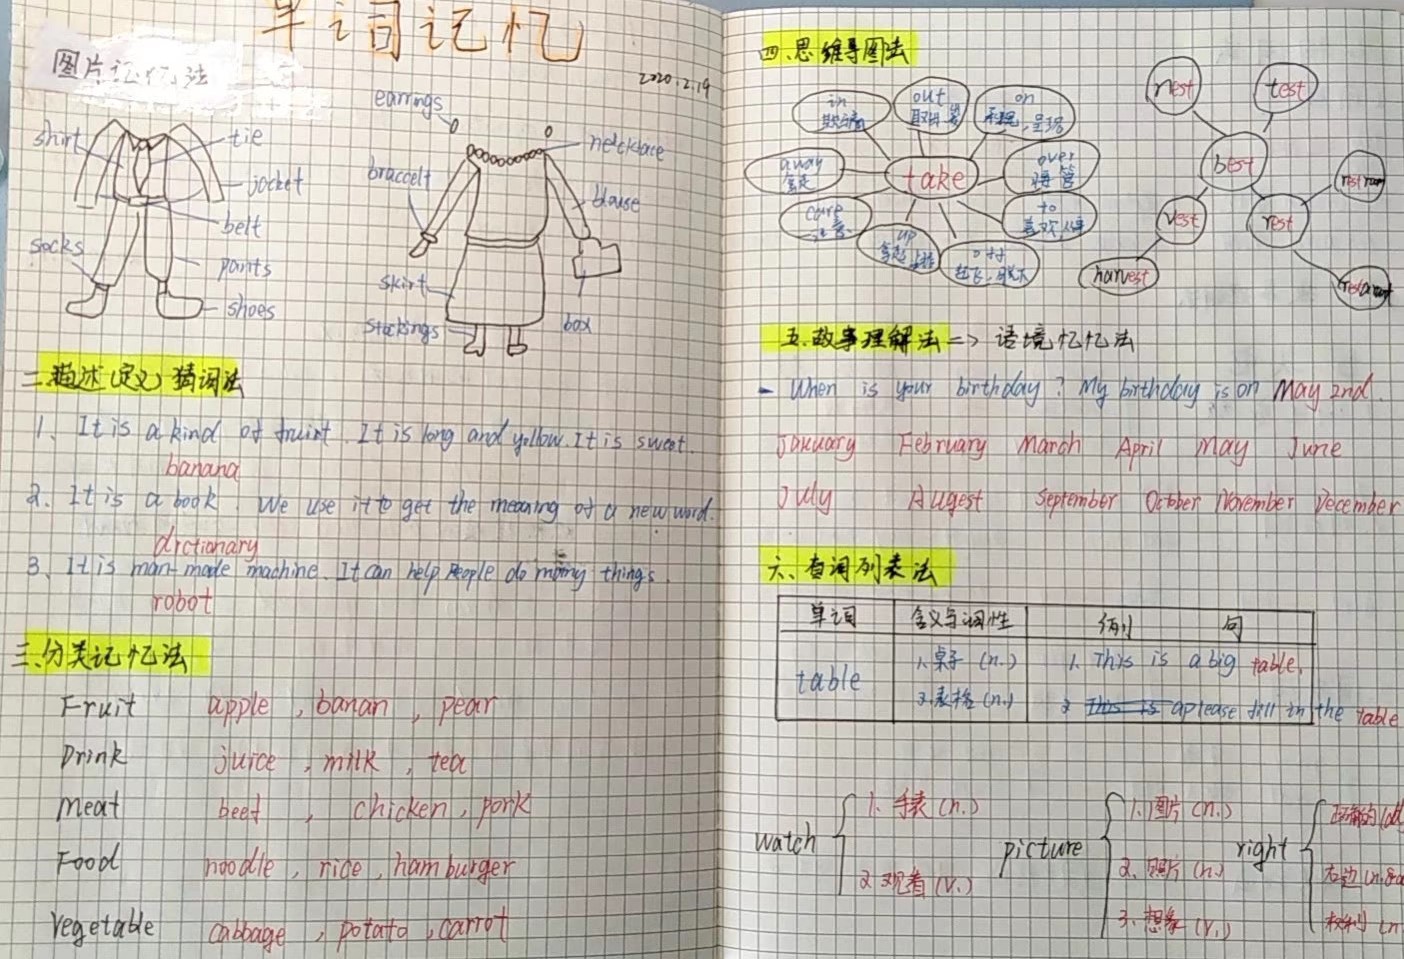 单词记忆
2020.2.19
图片记忆法
shirt
tie
jacket
belt
socks
pants
shoes
earrings
necklace
braccelt
blouse
skirt
stockings
box
二.描述(定义)猜词法
1、It is a kind of fruirt. It is long and yellow. It is sweet.
banana
2、It is a book. We use it to get the meaning of a new word.
dictionary
3、It is man-made machine. It can help people do many things.
robot
三.分类记忆法
Fruit apple , banan , pear
Drink juice , milk , tea
Meat beef , chicken , pork
Food noodle , rice , hamburger
Vegetable cabbage , potato , carrot
四.思维导图法
take
in
out
取出
on
呈现
away
拿走
over
接管
care
up
拿起
off
起飞,脱下
to
喜欢
nest
test
best
vest
rest
harvest
五.故事理解法=>语境忆忆法
- When is your birthday? My birthday is on May 2nd.
January February March April May June
July Augest September October November December
六、查词列表法
单词 含义与词性 例句
table 1.桌子(n.) 1. This is a big table.
2.表格(n.) 2 This is aplease fill in the table
watch 1. 手表(n.)
2. 观看(v.)
picture 1.图片(n.)
2.照片(n.)
3.想象(v.)
right 正确的(ad
右边(n.
权利(n